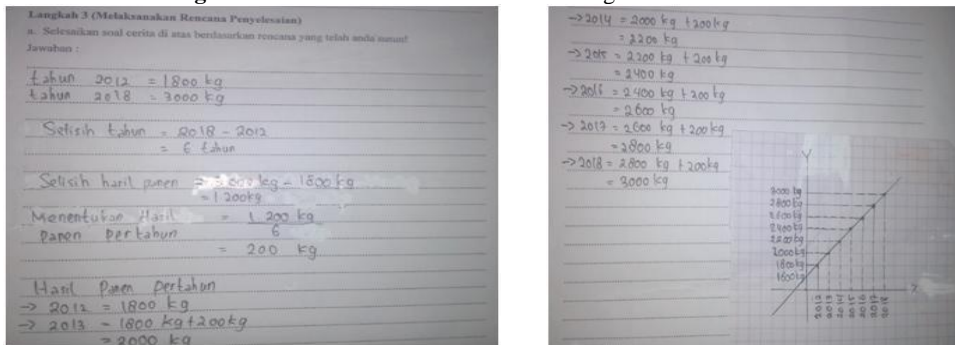 Langkah 3 (Melaksanakan Rencana Penyelesaian)
a. Selesaikan soal cerita di atas berdasarkan rencana yang telah anda susun!
Jawaban :
tahun 2012 = 1800 kg
tahun 2018 = 3000 kg
Selisih tahun = 2018 - 2012
= 6 tahun
Selisih hasil panen = kg - 1800 kg
= 1200 kg
Menentukan Hasil = 1 200 kg
Panen pertahun 6
= 200 kg
Hasil Panen pertahun
→ 2012 = 1800 kg
→ 2013 = 1800 kg + 200 kg
= 2000 kg
→ 2014 = 2000 kg + 200 kg
= 2200 kg
→ 2015 = 2200 kg + 200 kg
= 2400 kg
→ 2016 = 2400 kg + 200 kg
= 2600 kg
→ 2017 = 2600 kg + 200 kg
= 2800 kg
→ 2018 = 2800 kg + 200 kg
= 3000 kg
Y
3000 kg
2800 kg
2600 kg
2400 kg
2200 kg
2000 kg
1800 kg
1600 kg
2012 2013 2014 2015 2016 2017 2018